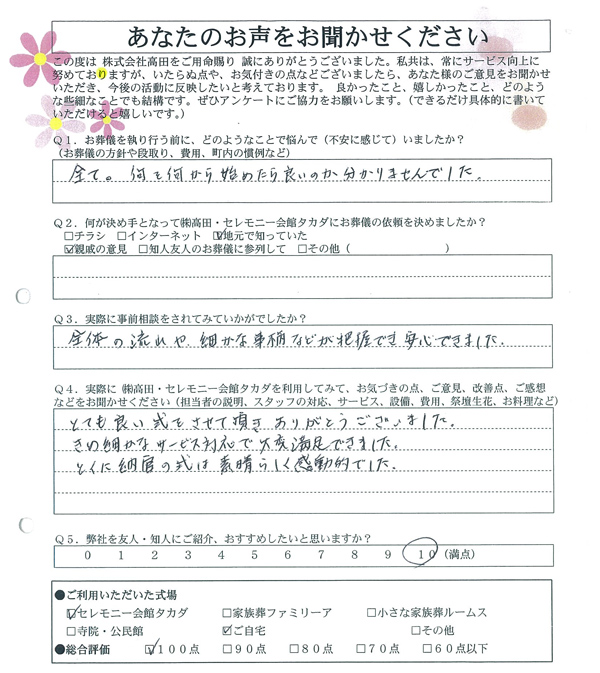 あなたのお声をお聞かせください
この度は 株式会社高田をご用命賜り 誠にありがとうございました。私共は、常にサービス向上に
努めておりますが、いたらぬ点や、お気付きの点などございましたら、あなた様のご意見をお聞かせ
いただき、今後の活動に反映したいと考えております。 良かったこと、嬉しかったこと、どのよう
な些細なことでも結構です。ぜひアンケートにご協力をお願いします。（できるだけ具体的に書いて
いただけると嬉しいです。）
Ｑ１．お葬儀を執り行う前に、どのようなことで悩んで（不安に感じて）いましたか？
（お葬儀の方針や段取り、費用、町内の慣例など）
全て。何を何から始めたら良いのか分かりませんでした。
Ｑ２．何が決め手となって㈱高田・セレモニー会館タカダにお葬儀の依頼を決めましたか？
□チラシ □インターネット ☑地元で知っていた
☑親戚の意見 □知人友人のお葬儀に参列して □その他（ ）
Ｑ３．実際に事前相談をされてみていかがでしたか？
全体の流れや、細かな事柄などが把握でき安心できました。
Ｑ４．実際に ㈱高田・セレモニー会館タカダを利用してみて、お気づきの点、ご意見、改善点、ご感想
などをお聞かせください（担当者の説明、スタッフの対応、サービス、設備、費用、祭壇生花、お料理など）
とても良い式をさせて頂きありがとうございました。
きめ細かなサービス対応で大変満足できました。
とくに納官の式は素晴らしく感動的でした。
Ｑ５．弊社を友人・知人にご紹介、おすすめしたいと思いますか？
０ １ ２ ３ ４ ５ ６ ７ ８ ９ １０（満点）
●ご利用いただいた式場
☑セレモニー会館タカダ □家族葬ファミリーア □小さな家族葬ルームス
□寺院・公民館 ☑ご自宅 □その他
●総合評価 ☑１００点 □９０点 □８０点 □７０点 □６０点以下